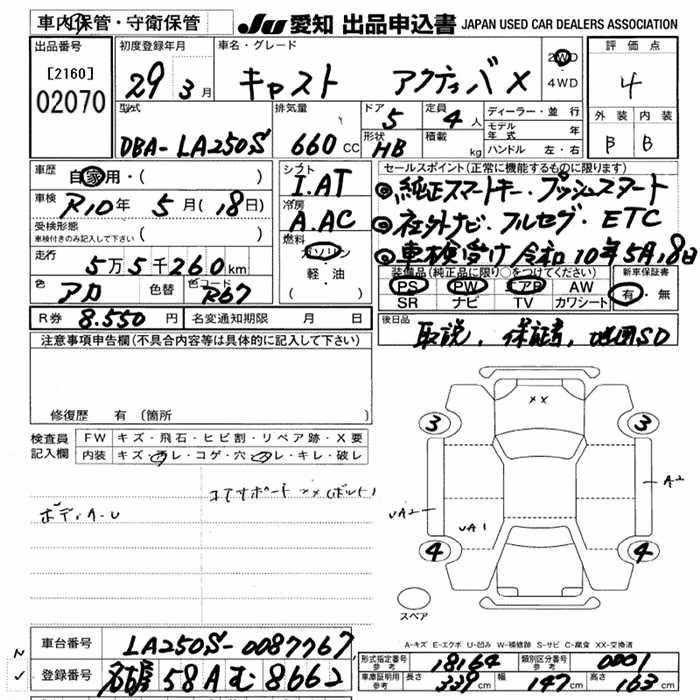 車内保管・守衛保管
JU 愛知 出品申込書 JAPAN USED CAR DEALERS ASSOCIATION
出品番号
[2160]
02070
初度登録年月
29年3月
車名・グレード
キャスト アクティバX
2WD
4WD
評価点
4
外装 内装
B B
型式
DBA-LA250S
排気量
660cc
ドア
5
定員
4人
形状
HB
積載
kg
ディーラー・並行
モデル年式 年
ハンドル 左・右
車歴
自家用・( )
車検
R10年5月(18日)
受検形態
車検付きのみ記入して下さい
( )
走行
5万5千260km
色
アカ
色替
色コード
R67
シフト
I.AT
冷房
A.AC
燃料
ガソリン
軽・油
セールスポイント(正常に機能するものに限ります)
◎純正スマートキー・プッシュスタート
◎社外ナビ・フルセグ・ETC
◎車検受け 令和10年5月18日
装備品(純正品に限り○をつけてください)
PS PW エアB AW
SR ナビ TV カワシート
新車保証書
有・無
R券 8.550円
名変通知期限 月 日
後日品
取説, 保証書, 地図SD
注意事項申告欄(不具合内容等は具体的に記入して下さい)
修復歴 有(箇所
検査員記入欄
FW キズ・飛石・ヒビ割・リペア跡・X要
内装 キズ・汚レ・コゲ・穴・スレ・キレ・破レ
コアサポートXX(ボルト)
ボディA-U
XX
3 3
UA2
UA1
A2
4 4
スペア
A-キズ E-エクボ U-凹み W-補修跡 S-サビ C-腐食 XX-交換済
車台番号
LA250S-0087767
登録番号
58A む 8662
型式指定番号
参考
18164
類別区分番号
参考
0001
車庫証明用
参考
長さ 339cm
幅 147cm
高さ 163cm